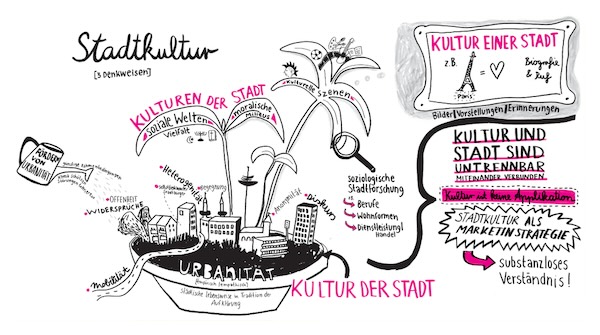 Stadtkultur
[3 Denkweisen]
KULTUREN DER STADT
Soziale Welten
Vielfalt
moralische
Milieus
Kulturelle Szenen
FÖRDERN
VON
URBANITÄT
OFFENHEIT
WIDERSPRÜCHE
Heterogenität
Begegnung
Anonymität
Diskurs
Mobilität
URBANITÄT
städtische Lebensweise in Tradition der
Aufklärung
KULTUR DER STADT
soziologische
Stadtforschung
Berufe
Wohnformen
Dienstleistung/
Handel
KULTUR EINER STADT
z.B.
Paris
=
Biografie
& Ruf
Bilder/Vorstellungen/Erinnerungen
KULTUR UND
STADT SIND
UNTRENNBAR
MITEINANDER VERBUNDEN.
Kultur ist keine Applikation
STADTKULTUR ALS
MARKETINSTRATEGIE
substanzloses
Verständnis!